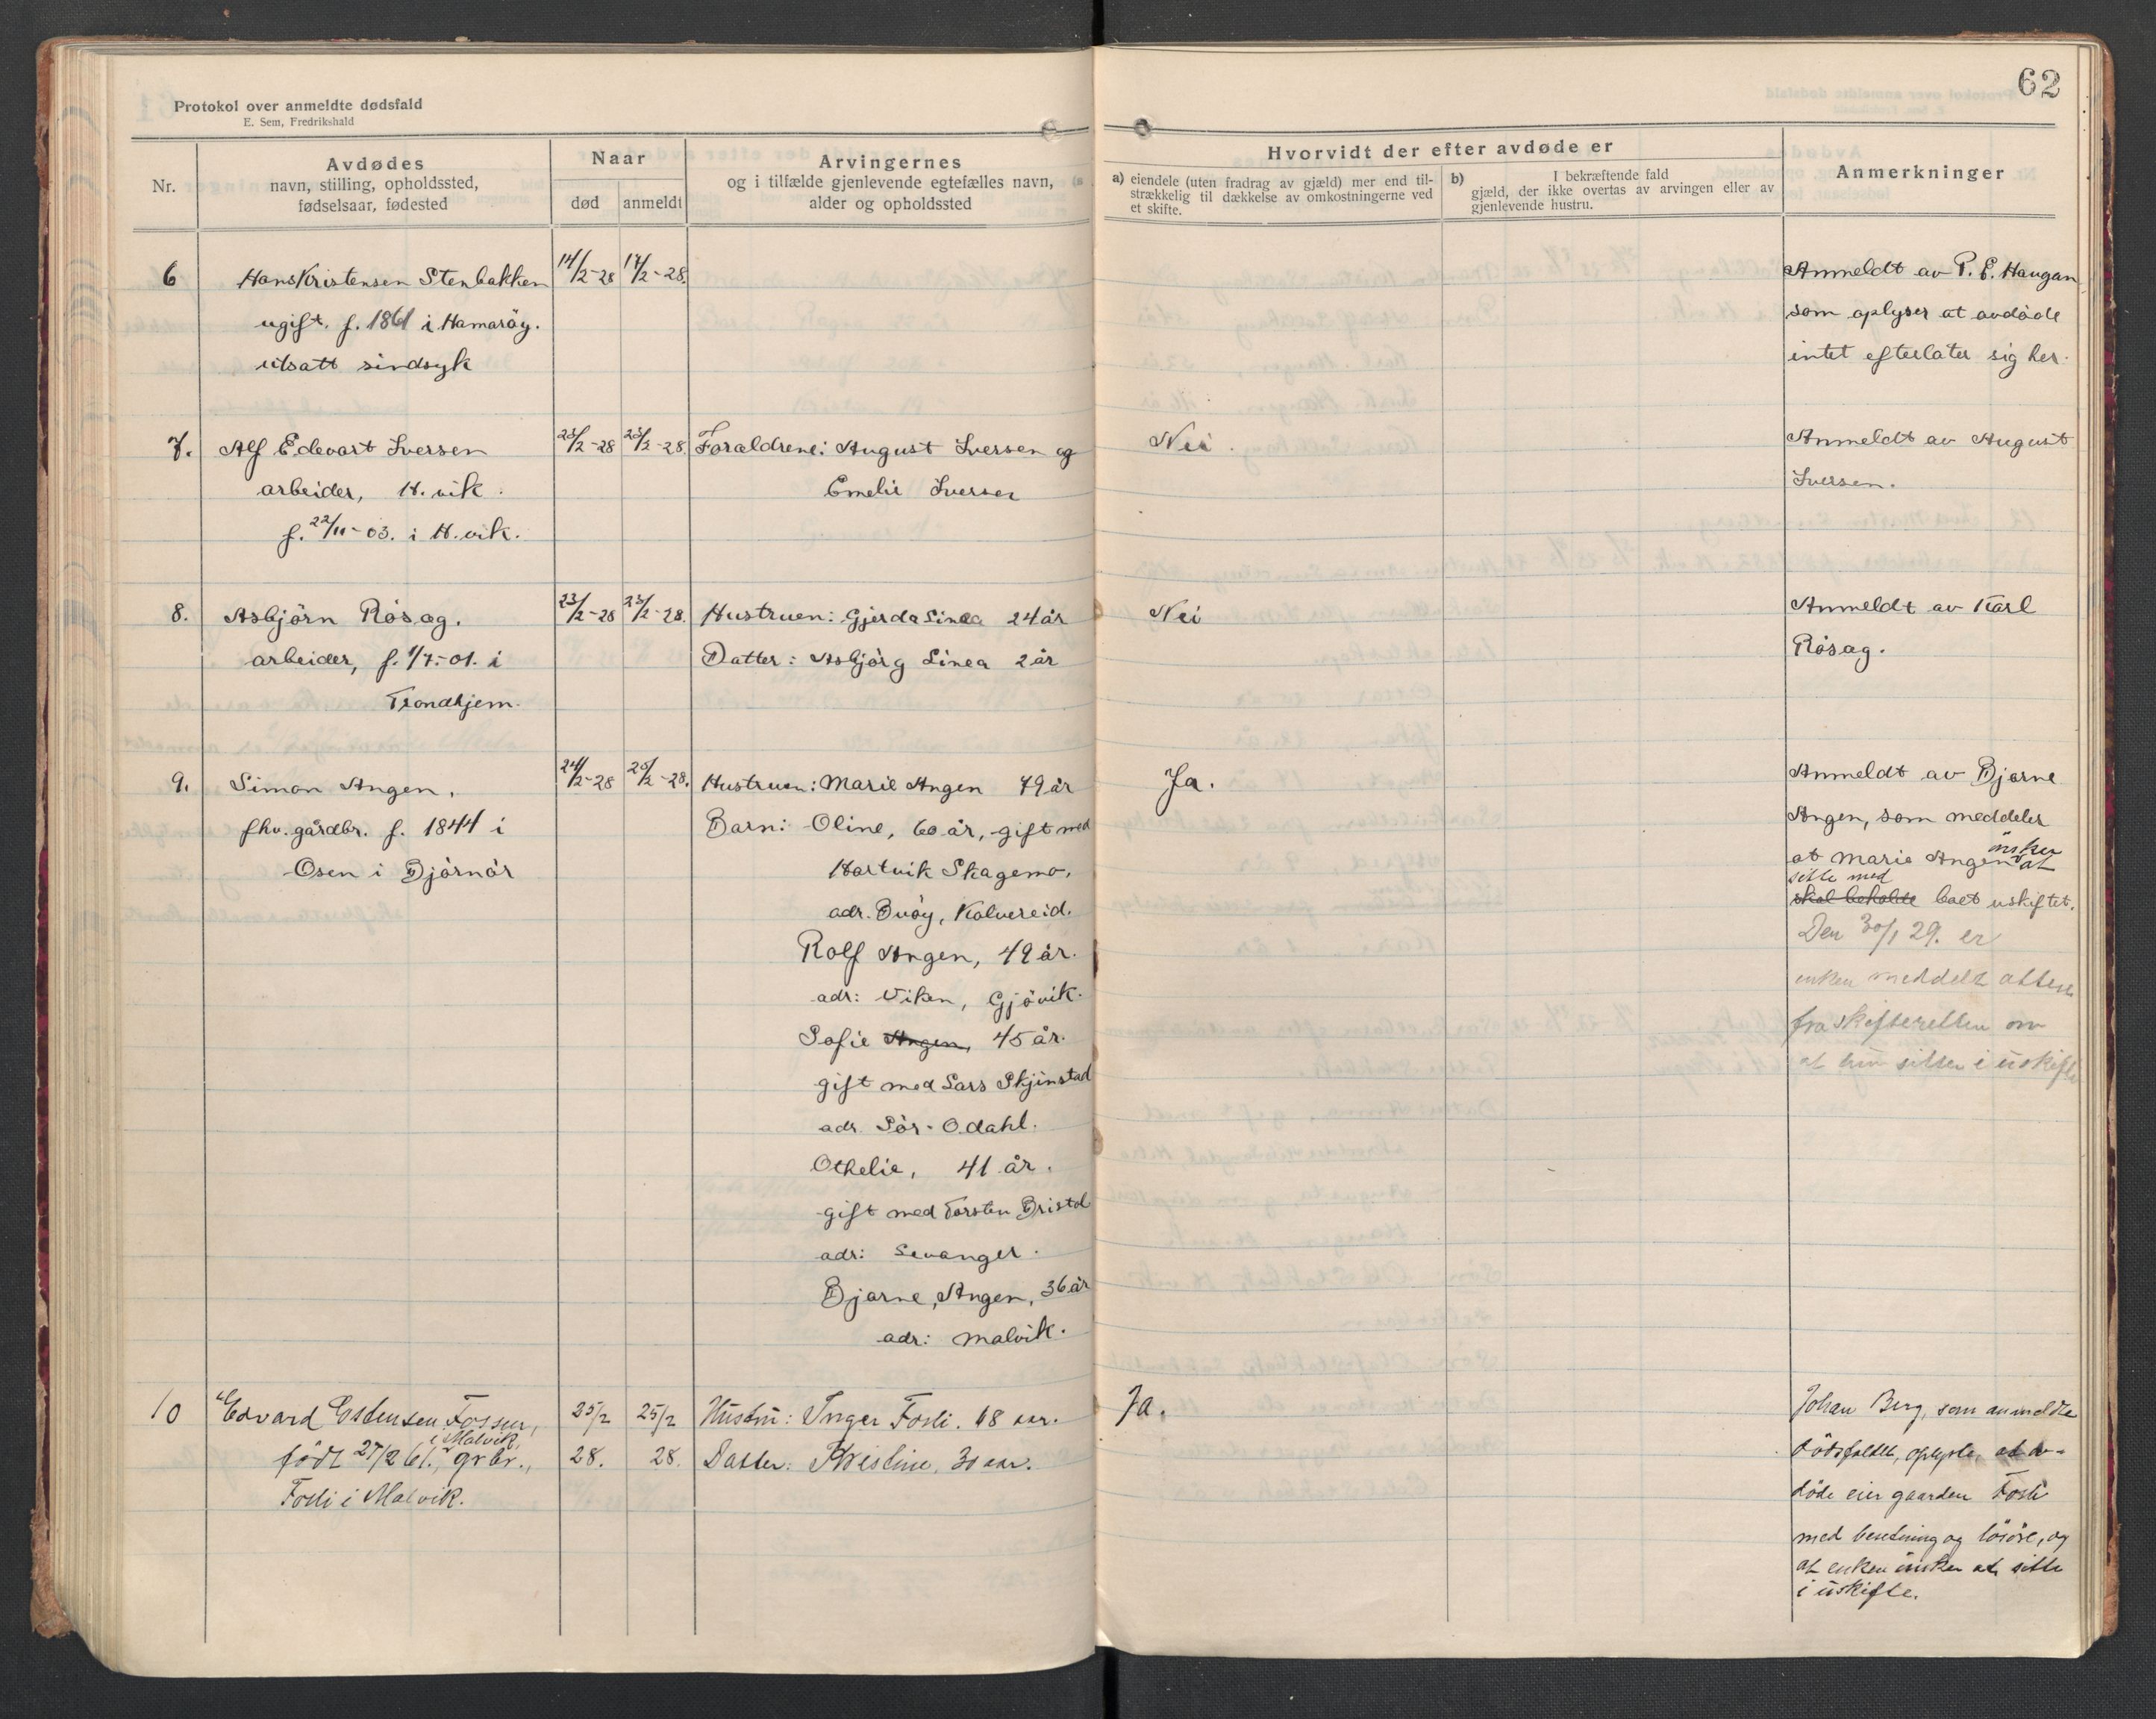 62
Protokol over anmeldte dødsfald
E. Sem, Fredrikshald
Nr.
Avdødes
navn, stilling, opholdssted,
fødselsaar, fødested
Naar
død
anmeldt
Arvingernes
og i tilfælde gjenlevende egtefælles navn,
alder og opholdssted
Hvorvidt der efter avdøde er
a) eiendele (uten fradrag av gjæld) mer end til-
strækkelig til dækkelse av omkostningerne ved
et skifte.
b) I bekræftende fald
gjæld, der ikke overtas av arvingen eller av
gjenlevende hustru.
Anmerkninger
6
Hans Kristensen Stenbakken
ugift. f. 1861 i Hamarøy.
utsatt sindsyk
14/2-28
17/2-28.
Anmeldt av P. E. Haugan
som oplyser at avdøde
intet efterlater sig her.
7.
Alf Edevart Iversen
arbeider, H.vik.
f. 22/11-03. i H.vik.
23/2-28
23/2-28.
Forældrene: August Iversen og
Emelie Iversen
Nei.
Anmeldt av August
Iversen.
8.
Asbjørn Røsag.
arbeider, f. 1/7-01. i
Trondhjem.
23/2-28
23/2-28.
Hustruen: Gjerda Linea 24 år
Datter: Asbjørg Linea 2 år
Nei
Anmeldt av Karl
Røsag.
9.
Simon Angen,
fhv. gårdbr. f. 1844 i
Osen i Bjørnør
24/2-28
25/2-28.
Hustruen: Marie Angen 79 år
Barn: Oline, 60 år, gift med
Hartvik Skagemo,
adr. Buøy, Kolvereid.
Rolf Angen, 49 år.
adr: Viken, Gjøvik.
Sofie Angen, 45 år.
gift med Lars Skjinstad
adr. Sør-Odahl.
Othelie, 41 år.
gift med Torsten Bristol
adr: Levanger.
Bjarne, Angen, 36 år
adr: Malvik.
Ja.
Anmeldt av Bjarne
Angen, som meddeler
at Marie Angen ønsker at
sitte med
skal beholde boet uskiftet.
Den 30/1 29. er
enken meddelt attest
fra skifteretten om
at hun sitter i uskifte
10
Edvard Estensen Fossen,
i Malvik,
født 27/2 61., grbr.,
Fosli i Malvik.
25/2
28.
25/2
28.
Hustru: Inger Fosli. 68 aar.
Datter: Kristine, 30 aar.
Ja.
Johan Berg, som anmeldte
dødsfaldet, oplyste, at av-
døde eier gaarden Fosli
med besetning og løsøre, og
at enken ønsker at sitte
i uskifte.